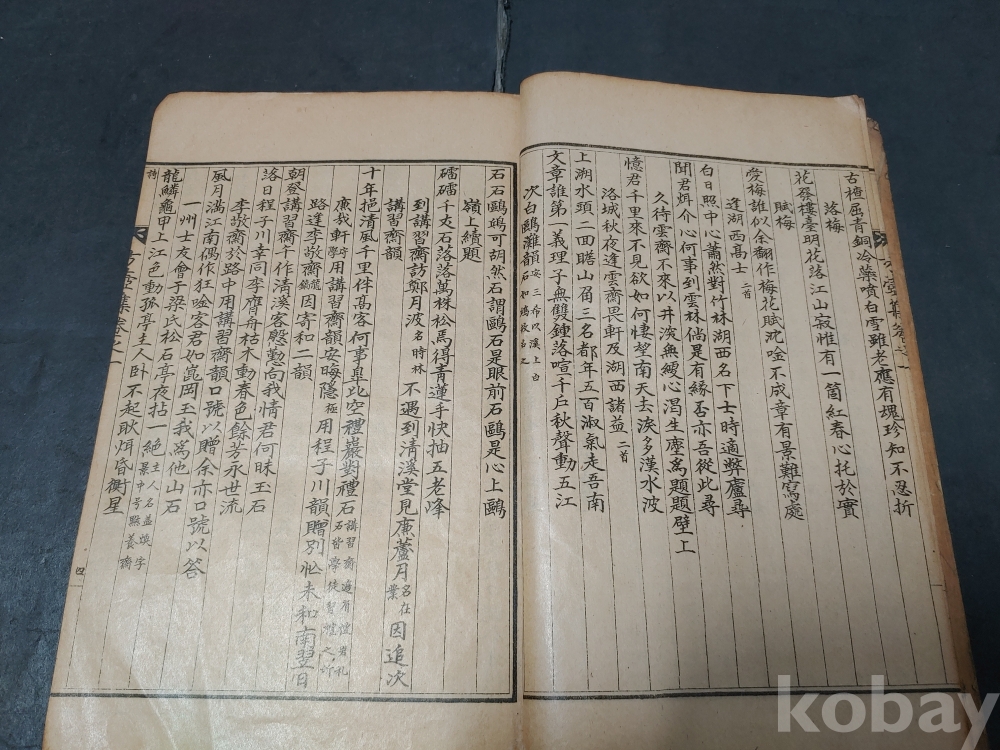 古楂屈青銅冷藥噴白雪雖老應有塊珍知不忍折
落梅
花發樓臺明花落江山寂惟有一箇紅春心托於實
賦梅
愛梅誰似余翻作梅花賦沈唫不成章有景難寫處
逢湖西高士二首
白日照中心蕭然對竹林湖西名下士時適弊廬尋
聞君烱介心何事到雲林倘是有緣否亦吾從此尋
久待雲齋不來以井渫無纓心渴生塵爲題題壁上
憶君千里來不見欲如何悽望南天去淚多漢水波
洛城秋夜逢雲齋畏軒及湖西諸益二首
上溯水頭二回瞻山角三名都年五百淑氣走吾南
文章誰第一義理子無雙鍾落喧千戶秋聲動五江
次白鷗灘韻安三布以溪上白石和鴻故名之
石石鷗鷗可胡然石謂鷗石是眼前石鷗是心上鷗
嶺上續題
礌礌千丈石落落萬株松焉得靑蓮手快抽五老峰
到講習齋訪鄭月波名時林不遇到清溪堂見廉蘆月名在業因追次
講習齋韻
十年挹清風千里伴高客何事臯比空禮巖對禮石講習齋邊有禮岩札石皆學徒習禮之所
廉我軒用講習齋韻安晦隱極用程子川韻贈別忙未和南翌日
路逢李敬齋因寄和二韻
朝登講習齋千作清溪客慇懃向我情君何昧玉石
落日程子川幸同李膺舟枯木動春色餘芳永世流
李敬齋於路中用講習齋韻口號以贈余亦口號以答
風月滿江南偶作狂唫客君如崑岡玉我爲他山石
一州士友會于梁氏松石亭夜拈一絶主人名孟煥字景中号默養齋
龍鱗龜甲上江色動孫亭主人卧不起耿烱昏衡星
詩
四
kobay